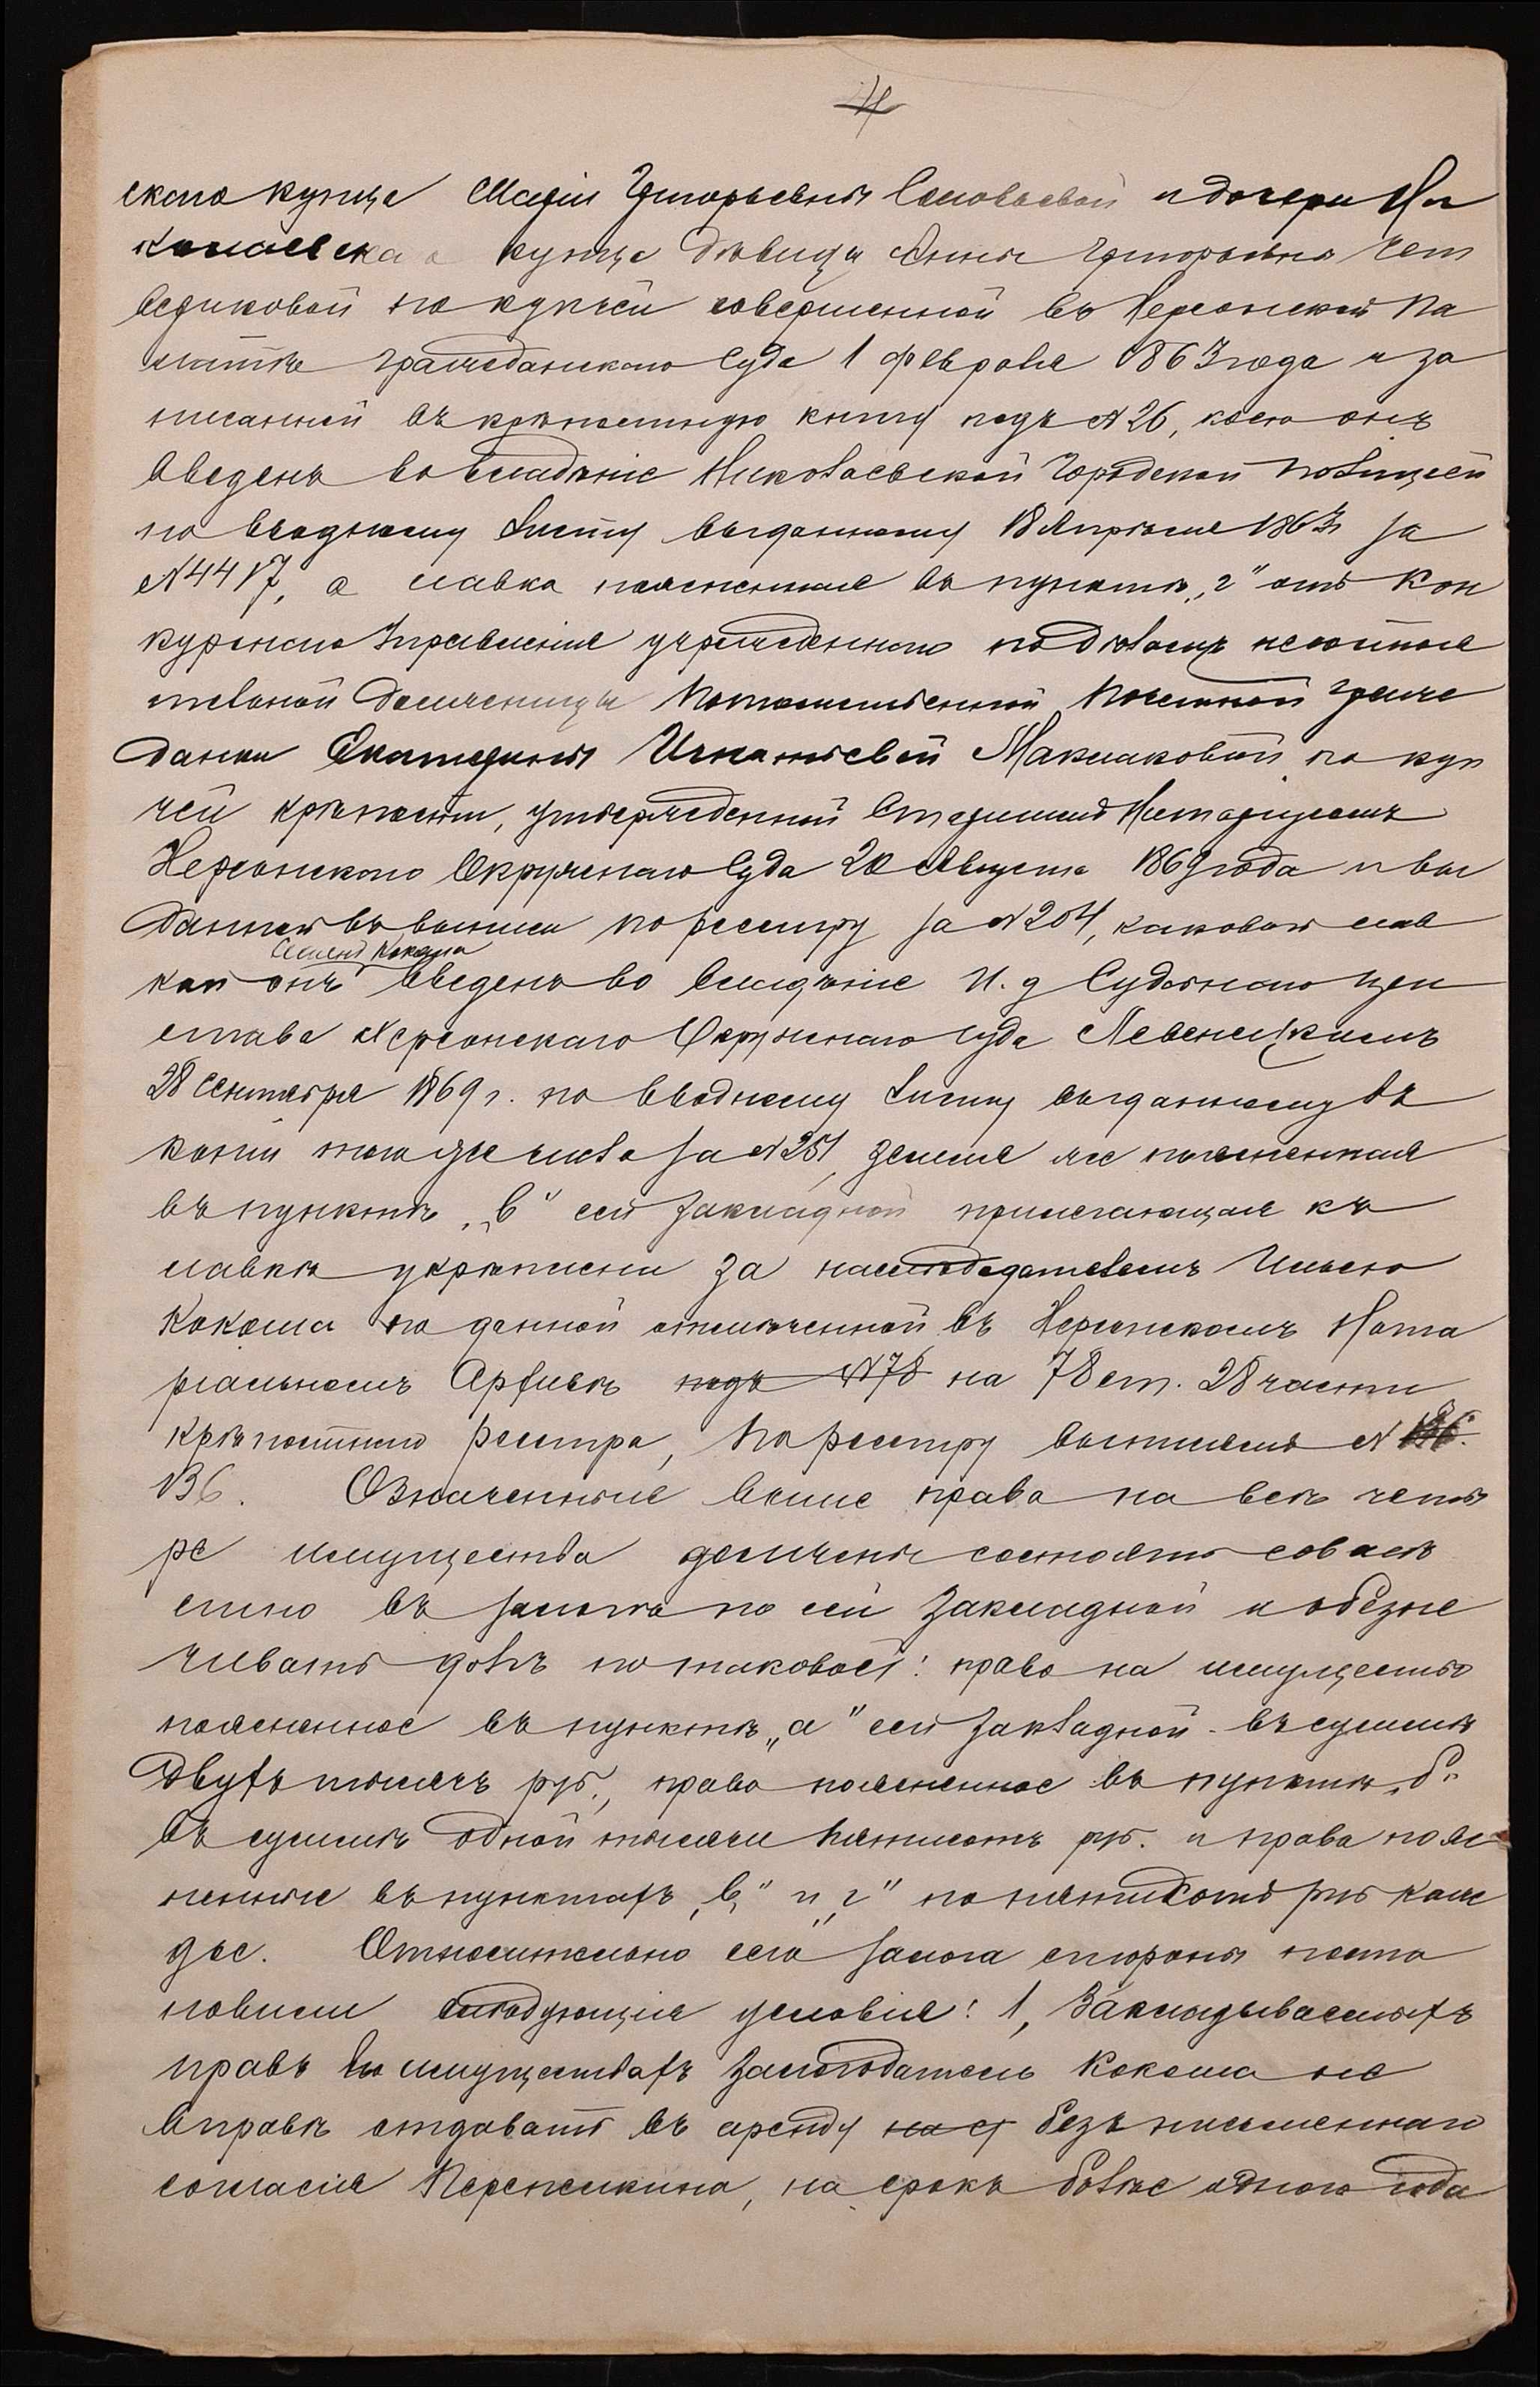 скаго купца Маріи Григорьевны Соловьевой и дочери Ни
колаевскаго купца дѣвицы Анны Григорьевны Чет
вериковой по купчей совершенной въ Херсонской Па
латѣ гражданскаго Суда 1 февраля 1863 года и за
писанной въ крѣпостную книгу подъ № 26, коею онъ
введенъ во владѣніе Николаевской Городской полиціей
по вводному листу выданному 18 Апрѣля 1863 г за
№ 4417, а лавка поясненная въ пунктѣ „г" отъ Кон
курснаго Управленія учрежденнаго по дѣламъ несостоя
тельной должницы Потомственной Почетной Граж
данки Екатерины Игнатьевой Маклаковой по куп
чей крѣпости, утвержденной Старшимъ Нотаріусомъ
Херсонскаго Окружнаго Суда 20 Августа 1869 года и вы
данной въ выписи по реестру за № 204, каковой лав
Кокоша
кой онъ введенъ во владѣніе И. д Судебнаго при
става Херсонскаго Окружнаго Суда Левенецкимъ
28 Сентября 1869 г. по вводному листу выданному въ
копіи того же числа за № 251, земля же поясненная
въ пунктѣ „в" сей закладной прилегающая къ
лавкѣ укрѣплена за наслѣдодателемъ Ильею
Кокоша по данной отмѣченной въ Херсонскомъ Нота
ріальномъ Архивѣ подъ № 78 на 78 ст. 28 части
крѣпостнаго реестра, по реестру выписямъ №
136. Означенныя выше права на всѣ четы
ре имущества должны состоять совмѣ
стно въ залогѣ по сей закладной и обезпе
чивать долгъ по таковой: право на имущество
поясненное въ пунктѣ „а" сей закладной - въ суммѣ
двухъ тысячъ руб., право поясненное въ пунктѣ „б"
въ суммѣ одной тысячи пятисотъ руб. и права пояс
ненныя въ пунктахъ „в" и „г" по пятисотъ руб каж
дое. Относительно сего залога стороны поста
новили слѣдующія условія: 1, Закладываемыхъ
правъ въ имуществахъ залогодатель Кокоша не
вправѣ отдавать въ аренду безъ письменнаго
согласія Перепелкина, на срокъ болѣе одного года